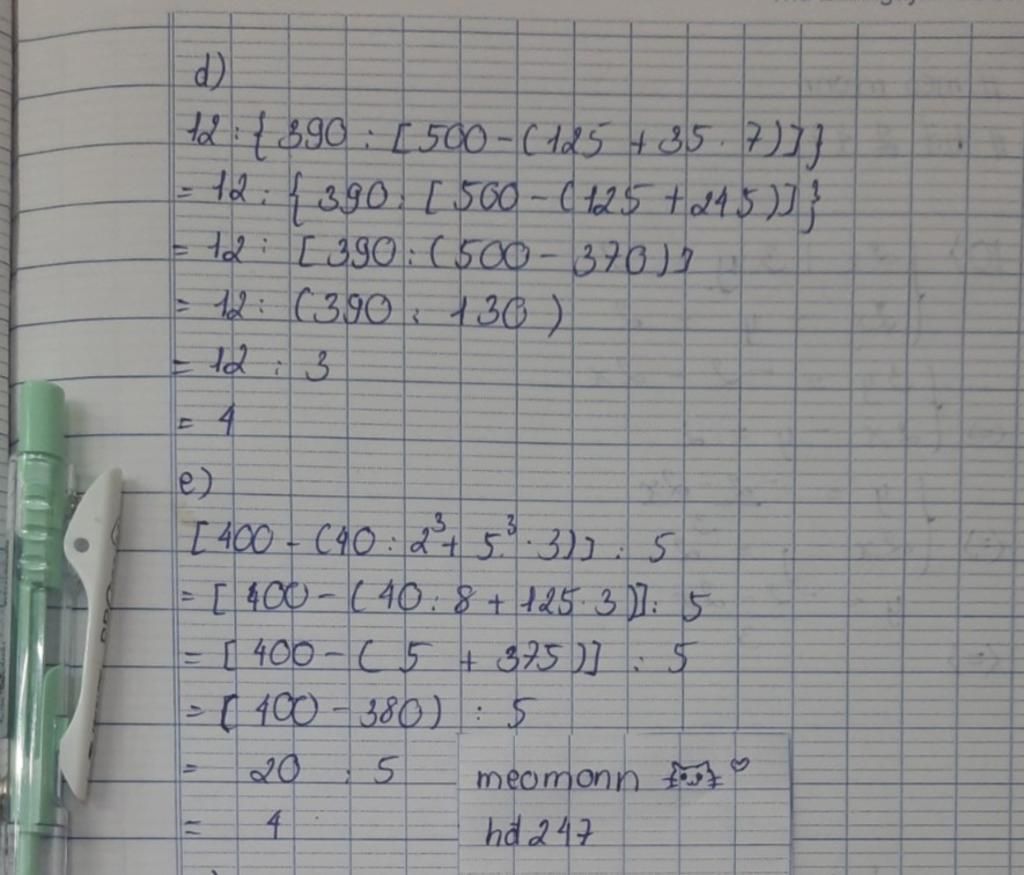 d)
12 : { 390 : [ 500 - ( 125 + 35 . 7 ) ] }
= 12 : { 390 : [ 500 - ( 125 + 245 ) ] }
= 12 : [ 390 : ( 500 - 370 ) ]
= 12 : ( 390 : 130 )
= 12 : 3
= 4
e)
[ 400 - ( 40 : 2³ + 5³ . 3 ) ] : 5
= [ 400 - ( 40 : 8 + 125 . 3 ) ] : 5
= [ 400 - ( 5 + 375 ) ] : 5
= [ 400 - 380 ) : 5
= 20 : 5
= 4
meomonn
hd 247